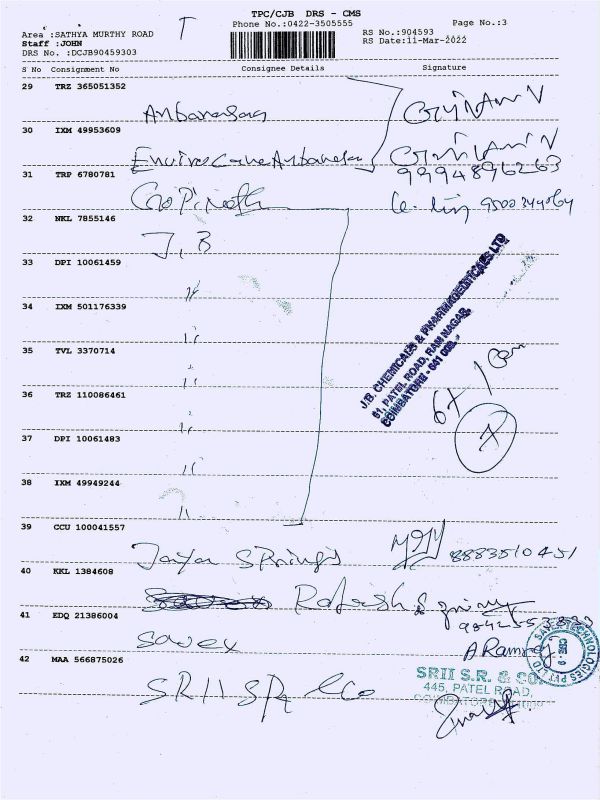 TPC/CJB DRS - CMS
Phone No.:0422-3505555
Page No.:3
Area :SATHYA MURTHY ROAD
T
Staff :JOHN
DRS No. :DCJB90459303
RS No.:904593
RS Date:11-Mar-2022
S No Consignment No Consignee Details Signature
29 TRZ 365051352
Anbarasan
30 IXM 49953609
31 TRP 6780781
9994896263
Gopinath
9500344064
32 NKL 7855146
J.B
33 DPI 10061459
"
34 IXM 501176339
"
35 TVL 3370714
"
36 TRZ 110086461
"
37 DPI 10061483
"
38 IXM 49949244
"
J.B. CHEMICALS & PHARMACEUTICALS LTD
61, PATEL ROAD, RAM NAGAR,
COIMBATORE - 641 009.
7
39 CCU 100041557
Jaya Springs
8883510451
40 KKL 1384608
41 EDQ 21386004
Savex
SAVEX TECHNOLOGIES PVT LTD
42 MAA 566875026
SRII SR &Co
SRII S.R. & CO.
445, PATEL ROAD,